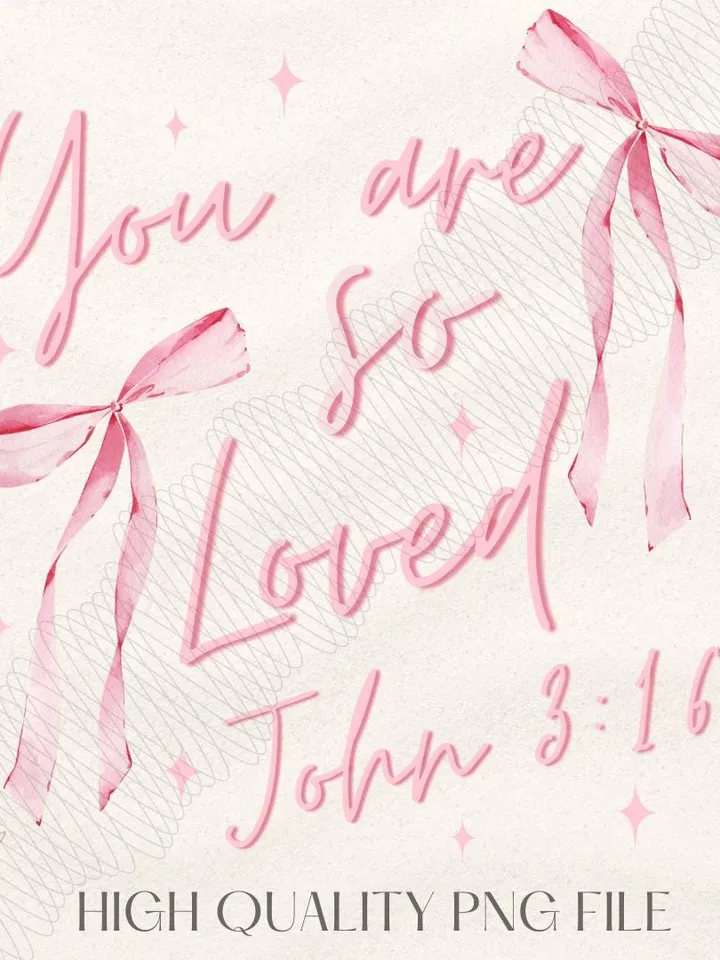 You are
so
Loved
John 3:16
HIGH QUALITY PNG FILE